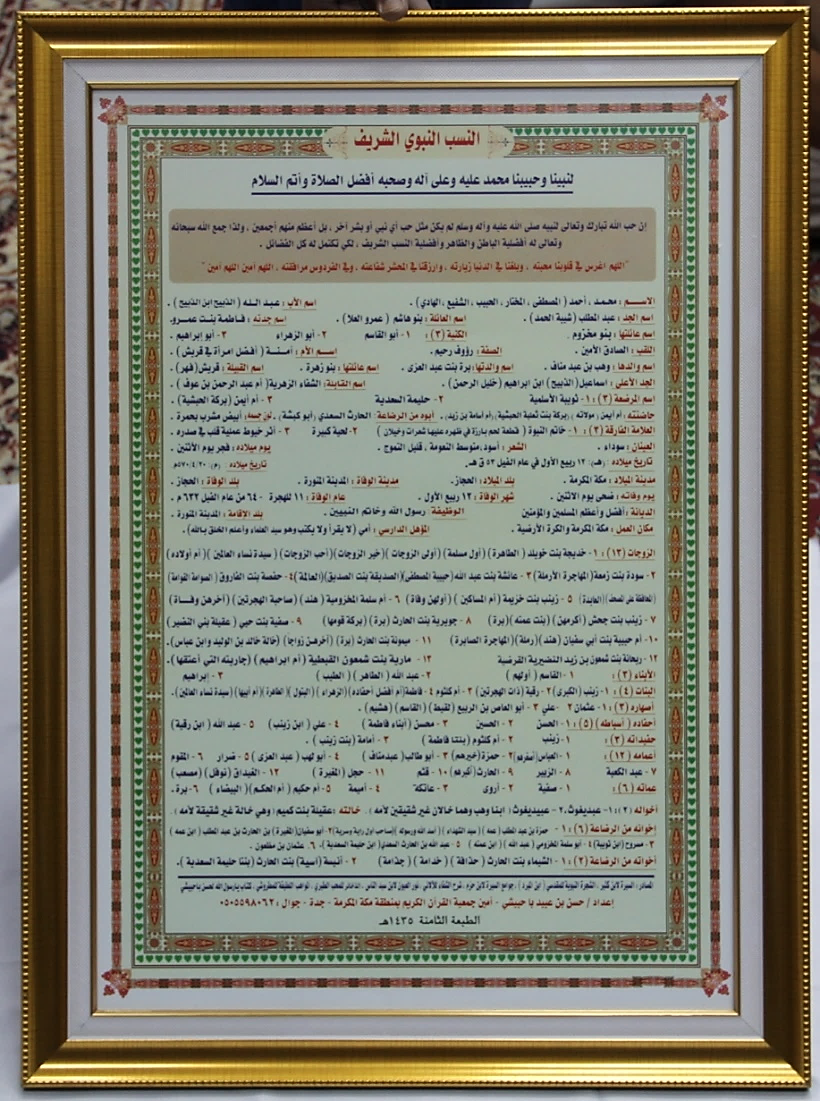 النسب النبوي الشريف
لنبينا وحبيبنا محمد عليه وعلى آله وصحبه أفضل الصلاة وأتم السلام
إن حب الله تبارك وتعالى لنبيه صلى الله عليه وآله وسلم لم يكن مثل حب أي نبي أو بشر آخر ، بل أعظم منهم أجمعين ، ولذا جمع الله سبحانه
وتعالى له أفضلية الباطن والظاهر وأفضلية النسب الشريف ، لكي تكتمل له كل الفضائل .
"اللهم اغرس في قلوبنا محبته ، وبلغنا في الدنيا زيارته ، وارزقنا في المحشر شفاعته ، وفي الفردوس مرافقته ، اللهم آمين اللهم آمين"
الاســم : محمد ، أحمد ( المصطفى ، المختار ، الحبيب ، الشفيع ، الهادي) . اسم الأب : عبد الله ( الذبيح ابن الذبيح ) .
اسم الجد : عبد المطلب (شيبة الحمد) . اسم العائلة : بنو هاشم ( عمرو العلا) . اسم جدته : فاطمة بنت عمرو .
اسم عائلتها : بنو مخزوم . الكنية (٣) : ١- أبو القاسم ٢- أبو الزهراء ٣- أبو إبراهيم .
اللقب : الصادق الأمين . الصفة : رؤوف رحيم . اسم الأم : آمنة ( أفضل امرأة في قريش ) .
اسم والدها : وهب بن عبد مناف . اسم والدتها : برة بنت عبد العزى . اسم عائلتها : بنو زهرة . اسم القبيلة : قريش ( فهر) .
الجد الأعلى : اسماعيل (الذبيح) ابن ابراهيم (خليل الرحمن) . اسم القابلة : الشفاء الزهرية ( أم عبد الرحمن بن عوف ) .
اسم المرضعة (٣) : ١- ثويبة الأسلمية ٢- حليمة السعدية ٣- أم أيمن (بركة الحبشية) .
حاضنته : أم أيمن ، مولاته ، (بركة بنت ثعلبة الحبشية) ، (أم أسامة بن زيد) . أبوه من الرضاعة : الحارث السعدي (أبو كبشة) . لون جسده : أبيض مشرب بحمرة .
العلامة الفارقة (٣) : ١- خاتم النبوة ( قطعة لحم بارزة في ظهره عليها شعرات وخيلان ) ٢- لحية كبيرة ٣- أثر خيوط عملية قلب في صدره .
العينان : سوداء . الشعر : أسود ، متوسط النعومة ، قليل التموج . يوم ميلاده : فجر يوم الأثنين .
تاريخ ميلاده : (هـ) : ١٢ ربيع الأول في عام الفيل ٥٣ ق هـ . تاريخ ميلاده : (م) : ٥٧٠/٤/٢٠م .
مدينة الميلاد : مكة المكرمة . بلد الميلاد : الحجاز . مدينة الوفاة : المدينة المنورة . بلد الوفاة : الحجاز .
يوم وفاته : ضحى يوم الاثنين . شهر الوفاة : ١٢ ربيع الأول . عام الوفاة : ١١ للهجرة - ٦٤ من عام الفيل ٦٣٢ م .
الديانة : أفضل وأعظم المسلمين والمؤمنين الوظيفة رسول الله وخاتم النبيين . بلد الإقامة : المدينة المنورة .
مكان العمل : مكة المكرمة والكرة الأرضية . المؤهل الدراسي : أمي (لا يقرأ ولا يكتب وهو سيد العلماء وأعلم الخلق بالله) .
الزوجات (١٣) : ١- خديجة بنت خويلد ( الطاهرة ) ( أول مسلمة ) ( أولى الزوجات ) ( خير الزوجات ) ( أحب الزوجات ) ( سيدة نساء العالمين ) ( أم أولاده )
٢- سودة بنت زمعة ( المهاجرة الأرملة ) ٣- عائشة بنت عبد الله ( حبيبة المصطفى ) ( الصديقة بنت الصديق ) ( العالمة ) ٤- حفصة بنت الفاروق ( الصوامة القوامة )
(العابدة) ٥- زينب بنت خزيمة ( أم المساكين ) ( أولهن وفاة ) ٦- أم سلمة المخزومية ( هند ) ( صاحبة الهجرتين ) ( آخرهن وفــاة )
٧- زينب بنت جحش ( أكرمهن ) ( بنت عمته ) ( برة ) ٨- جويرية بنت الحارث ( برة ) ( بركة قومها ) ٩- صفية بنت حيي ( عقيلة بني النضير )
١٠- أم حبيبة بنت أبي سفيان ( هند ) ( رملة ) ( المهاجرة الصابرة ) ١١- ميمونة بنت الحارث ( برة ) ( آخرهن زواجا ) ( خالة خالد بن الوليد وابن عباس) .
١٢- ريحانة بنت شمعون بن زيد النضيرية القرضية ١٣- مارية بنت شمعون القبطية ( أم ابراهيم ) ( جاريته التي أعتقها ) .
الأبناء (٣) : ١- القاسم ( أولهم ) ٢- عبد الله ( الطاهر ) ( الطيب ) ٣- إبراهيم
البنات (٤) : ١- زينب (الكبرى) ٢- رقية (ذات الهجرتين) ٣- أم كلثوم ٤- فاطمة (أم أفضل أحفاده) (الزهراء) ( البتول ) ( الطاهرة ) ( أم أبيها ) ( سيدة نساء العالمين) .
أصهاره (٣) : ١- عثمان ٢- علي ٣- أبو العاص بن الربيع ( لقيط ) ( القاسم ) ( هشيم ) .
أحفاده ( أسباطه ) (٥) : ١- الحسن ٢- الحسين ٣- محسن ( أبناء فاطمة ) ٤- علي ( ابن زينب ) ٥- عبد الله ( ابن رقية )
حفيداته (٣) : ١- زينب ٢- أم كلثوم ( بنتا فاطمة ) ٣- أمامة ( بنت زينب ) .
أعمامه (١٢) : ١- العباس (أصغرهم) ٢- حمزة (خيرهم) ٣- أبو طالب ( عبد مناف ) ٤- أبو لهب ( عبد العزى ) ٥- ضرار ٦- المقوم
٧- عبد الكعبة ٨- الزبير ٩- الحارث (أكبرهم) ١٠- قثم ١١- حجل ( المغيرة ) ١٢- الغيداق ( نوفل ) ( مصعب )
عماته (٦) : ١- صفية ٢- أروى ٣- عاتكة ٤- أميمة ٥- أم حكيم ( أم الحكم ) ( البيضاء ) ٦- برة .
أخواله (٢) : ١- عبد يغوث . ٢- عبيد يغوث : ابنا وهب وهما خالان غير شقيقين لأمه . خالته : عقيلة بني كميم : وهي خالة غير شقيقة لأمه .
إخوانه من الرضاعة (٦) : ١- حمزة بن عبد المطلب ( عمه ) ( سيد الشهداء ) ( أسد الله ورسوله ) ( صاحب أول راية وسرية ) ٢- أبو سفيان ( المغيرة ) بن الحارث بن عبد المطلب ( ابن عمه )
٣- مسروح (ابن ثويبة) ٤- أبو سلمة المخزومي ( عبد الله ) ( ابن عمته ) ٥- عبد الله بن الحارث السعدي ( ابن حليمة السعدية ) . ٦- عثمان بن مظعون .
أخواته من الرضاعة (٢) : ١- الشيماء بنت الحارث ( حذافة ) ( خدامة ) ( جذامة ) ٢- أنيسة (آسية) بنت الحارث ( بنتا حليمة السعدية ) .
إعداد / حسن بن عبيد باحبيشي - أمين جمعية القرآن الكريم بمنطقة مكة المكرمة - جدة - جوال : ٠٥٠٥٥٩٨٠٦٢
الطبعة الثامنة ١٤٣٥هـ